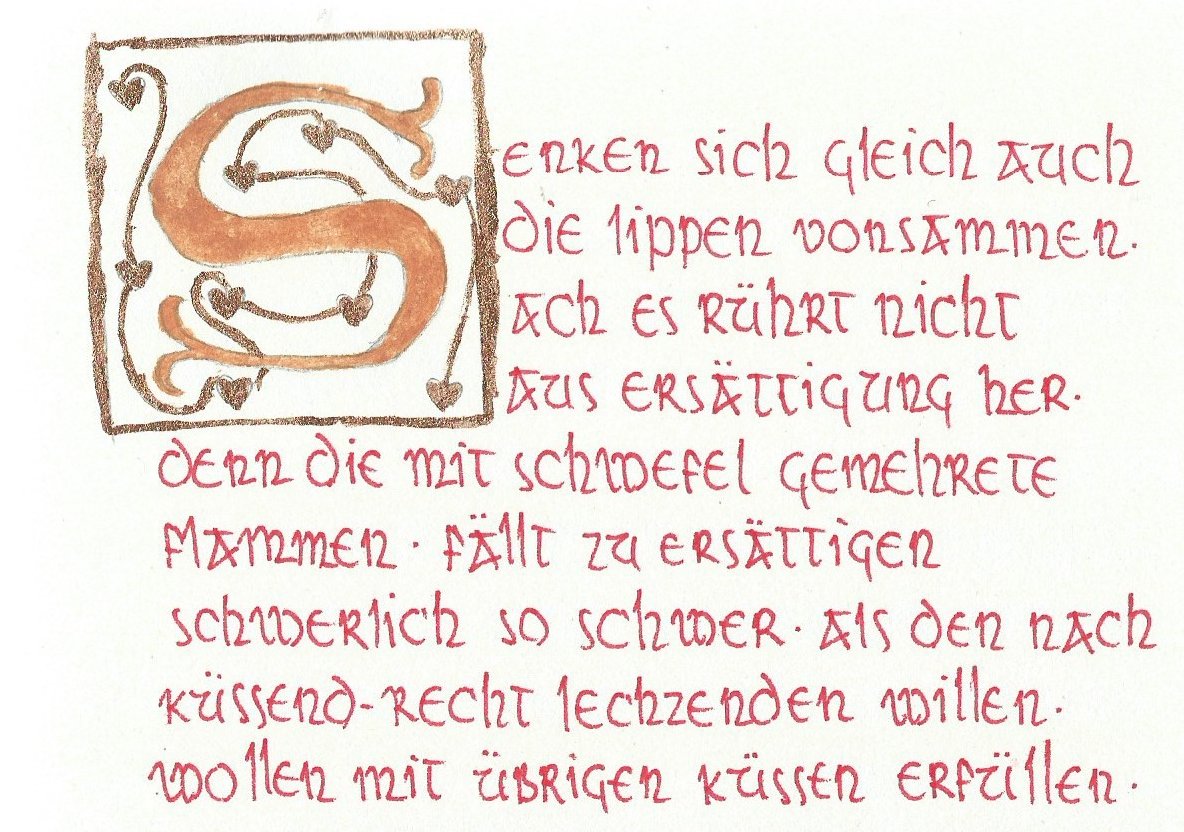 Senken sich gleich auch
die lippen vonsammen.
ach es rührt nicht
aus ersättigung her.
denn die mit schwefel gemehrete
flammen. fällt zu ersättigen
schwerlich so schwer. als den nach
küssend-recht lechzenden willen.
wollen mit übrigen küssen erfüllen.